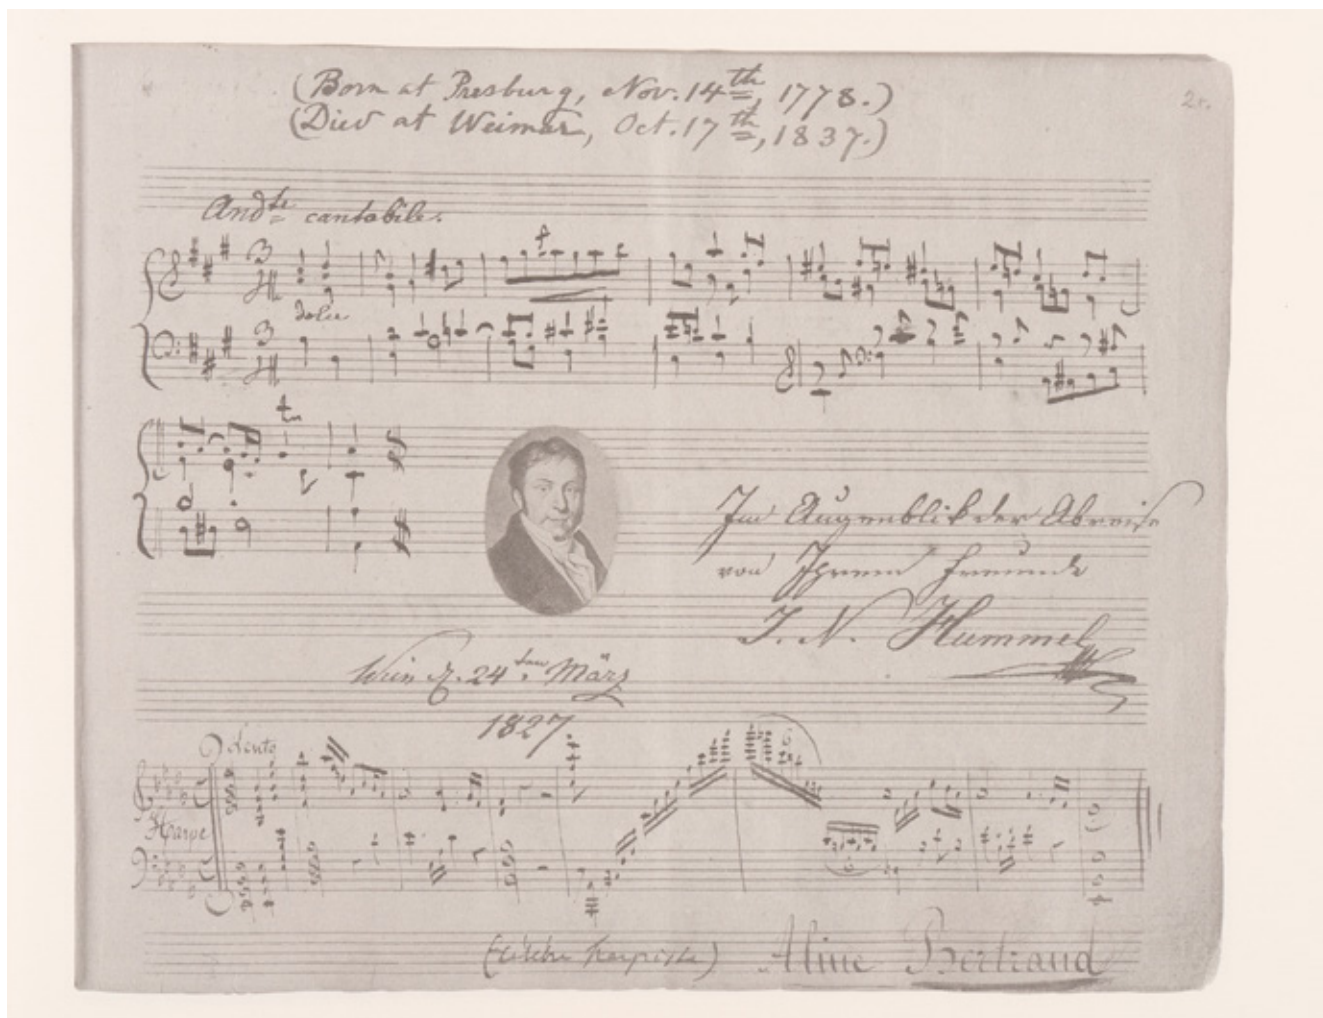 (Born at Presburg, Nov. 14th, 1778.)
(Died at Weimar, Oct. 17th, 1837.)
2r.
Andte cantabile.
dolce
tr
Im Augenblik der Abreise
von Ihrem Freunde
J. N. Hummel
Wien d. 24ten März
1827.
Lento
Harpe
(célèbre harpiste) Aline Bertrand